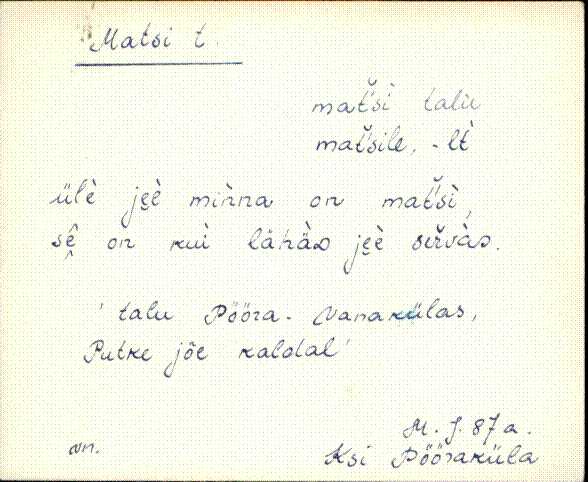 Matsi t.
mat̆'sì talu
mat̆'sile, -lt̀
ülè jẹè mìnna on mat̆'sì,
sệ on kuì lähàɒ jẹè servàɒ.
' talu Pööra-Vanakülas,
Putke jõe kaldal '
M. J. 87 a.
vn. Ksi Pööraküla